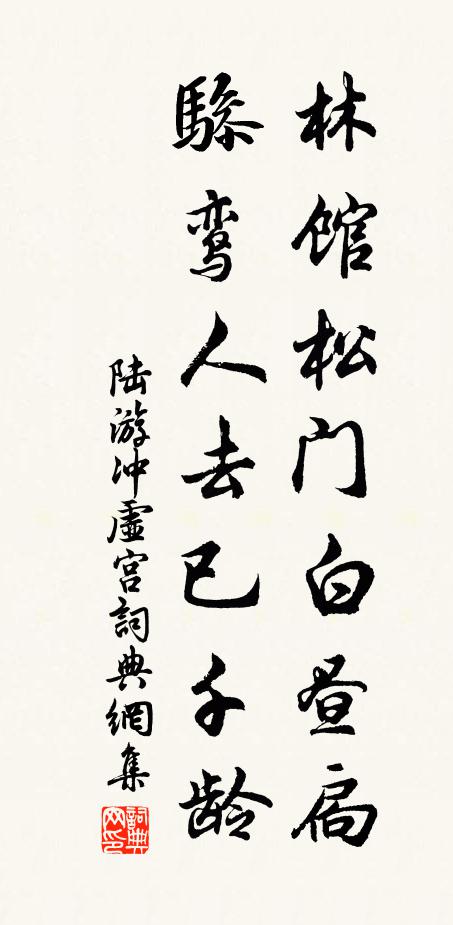 林馆松门白昼扃
骖鸾人去已千龄
陆游冲虚宫詞典網集
詞典网印